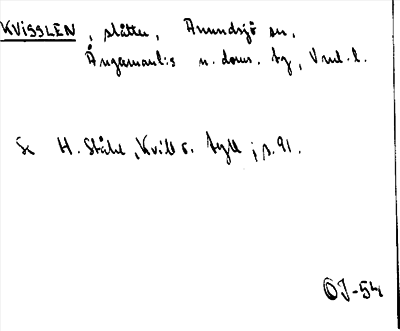 KVISSLEN, slåtter, Anundsjö sn,
Ångermanl:s n. doms. tg, Vnl. l.
Se H. Ståhl, Kvill o. tyll, s. 91.
OJ-54